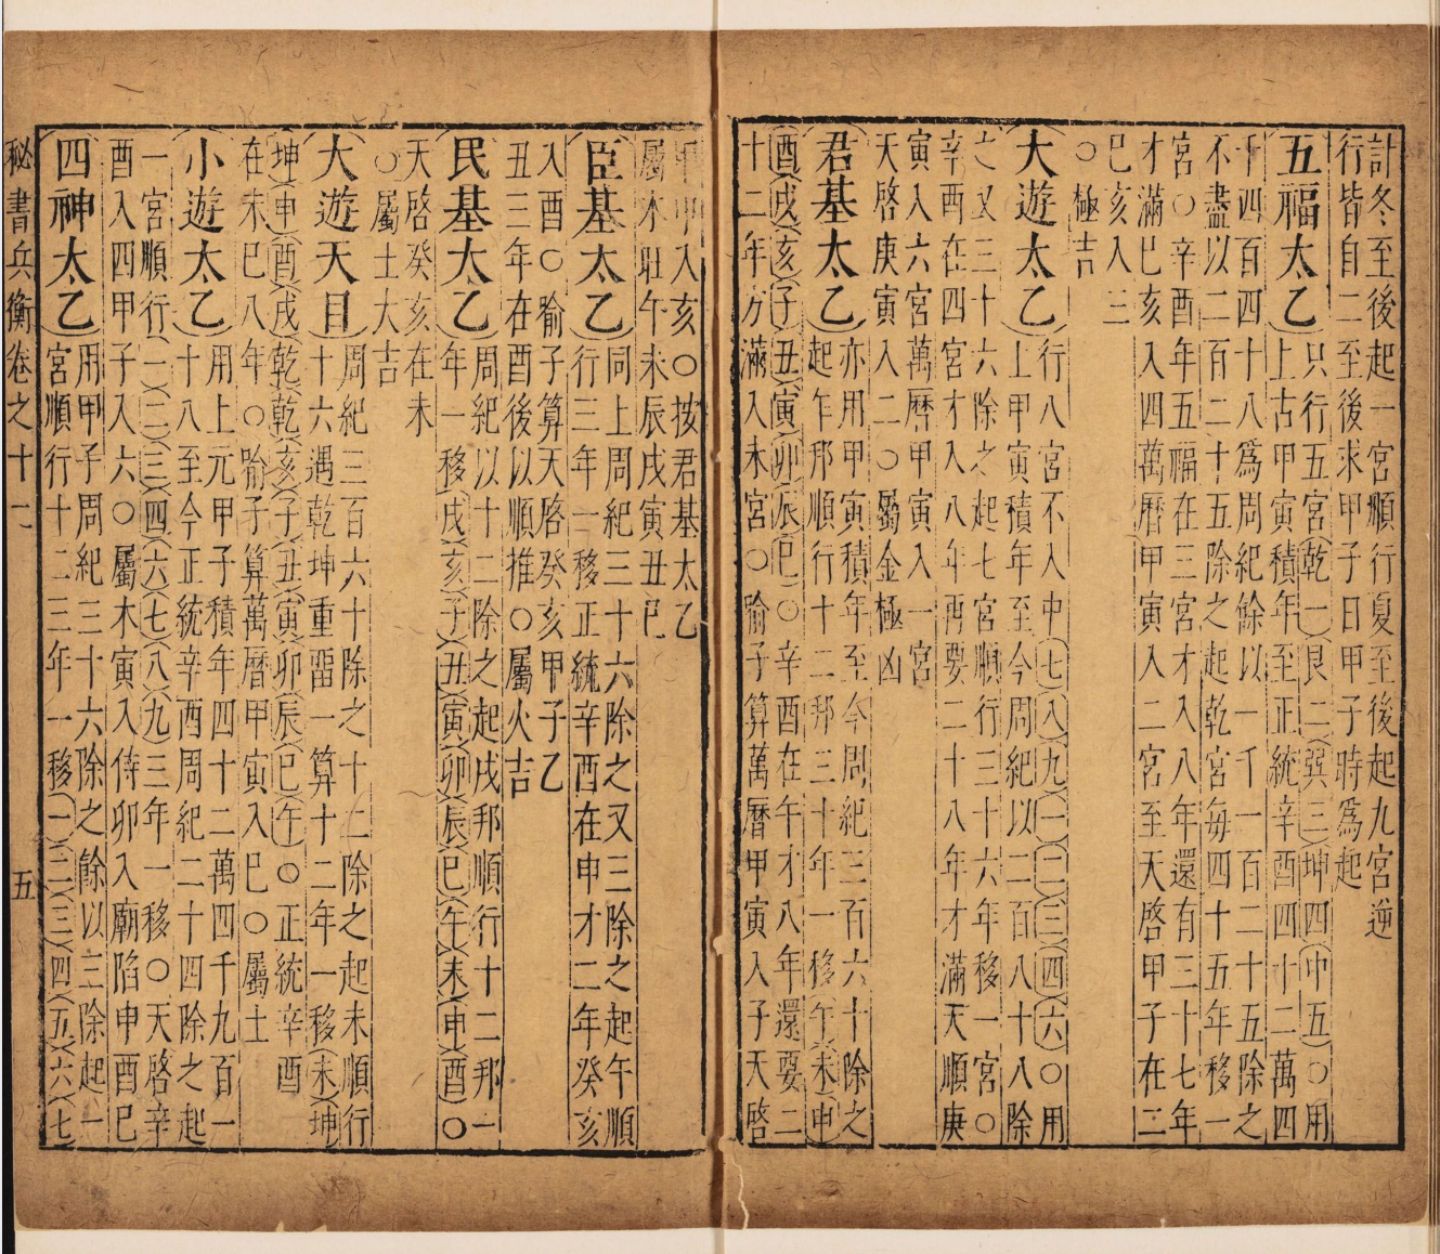 計冬至後起一宮順行夏至後起九宮逆
行皆自二至後求甲子日甲子時為起
五福太乙
只行五宮(乾一)(艮二)(巽三)(坤四)(中五)○用
上古甲寅積年至正統辛酉四十二萬四
千四百四十八爲周紀餘以一千一百二十五除之
不盡以二百二十五除之起乾宮每四十五年移一
宮○辛酉年五福在三宮才入八年還有三十七年
才滿巳亥入四萬曆甲寅入二宮至天啓甲子在二
巳亥入三
○極吉
大遊太乙
行八宮不入中(七)(八)(九)(一)(二)(三)(四)(六)○用
上甲寅積年至今周紀以二百八十八除
之又三十六除之起七宮順行三十六年移一宮○
辛酉在四宮才入八年再要二十八年才滿天順庚
寅入六宮萬曆甲寅入一宮
天啓庚寅入二○屬金極凶
君基太乙
亦用甲寅積年至今周紀三百六十除之
起午邦順行十二邦三十年一移(午)(未)(申)
(酉)(戌)(亥)(子)(丑)(寅)(卯)(辰)(巳)○辛酉在午才八年還要二
十二年方滿入未宮○喻子算萬曆甲寅入子天啓
甲申入亥○按君基太乙
屬木旺午未辰戌寅丑巳
臣基太乙
同上周紀三十六除之又三除之起午順
行三年一移正統辛酉在申才二年癸亥
入酉○喻子算天啓癸亥甲子乙
丑三年在酉後以順推○屬火吉
民基太乙
周紀以十二除之起戌邦順行十二邦一
年一移(戌)(亥)(子)(丑)(寅)(卯)(辰)(巳)(午)(未)(申)(酉)○
天啓癸亥在未
○屬土大吉
大遊天目
周紀三百六十除之十二除之起未順行
十六遇乾坤重畱一算十二年一移(未)(坤)
(坤)(申)(酉)(戌)(乾)(乾)(亥)(子)(丑)(寅)(卯)(辰)(巳)(午)○正統辛酉
在未巳八年○喻子算萬曆甲寅入巳○屬土
小遊太乙
用上元甲子積年四十二萬四千九百一
十八至今正統辛酉周紀二十四除之起
一宮順行(一)(二)(三)(四)(六)(七)(八)(九)三年一移○天啓辛
酉入四甲子入六○屬木寅入侍卯入廟陷申酉巳
四神太乙
用甲子周紀三十六除之餘以三除起一
宮順行十二三年一移(一)(二)(三)(四)(五)(六)(七
秘書兵衡卷之十一 五